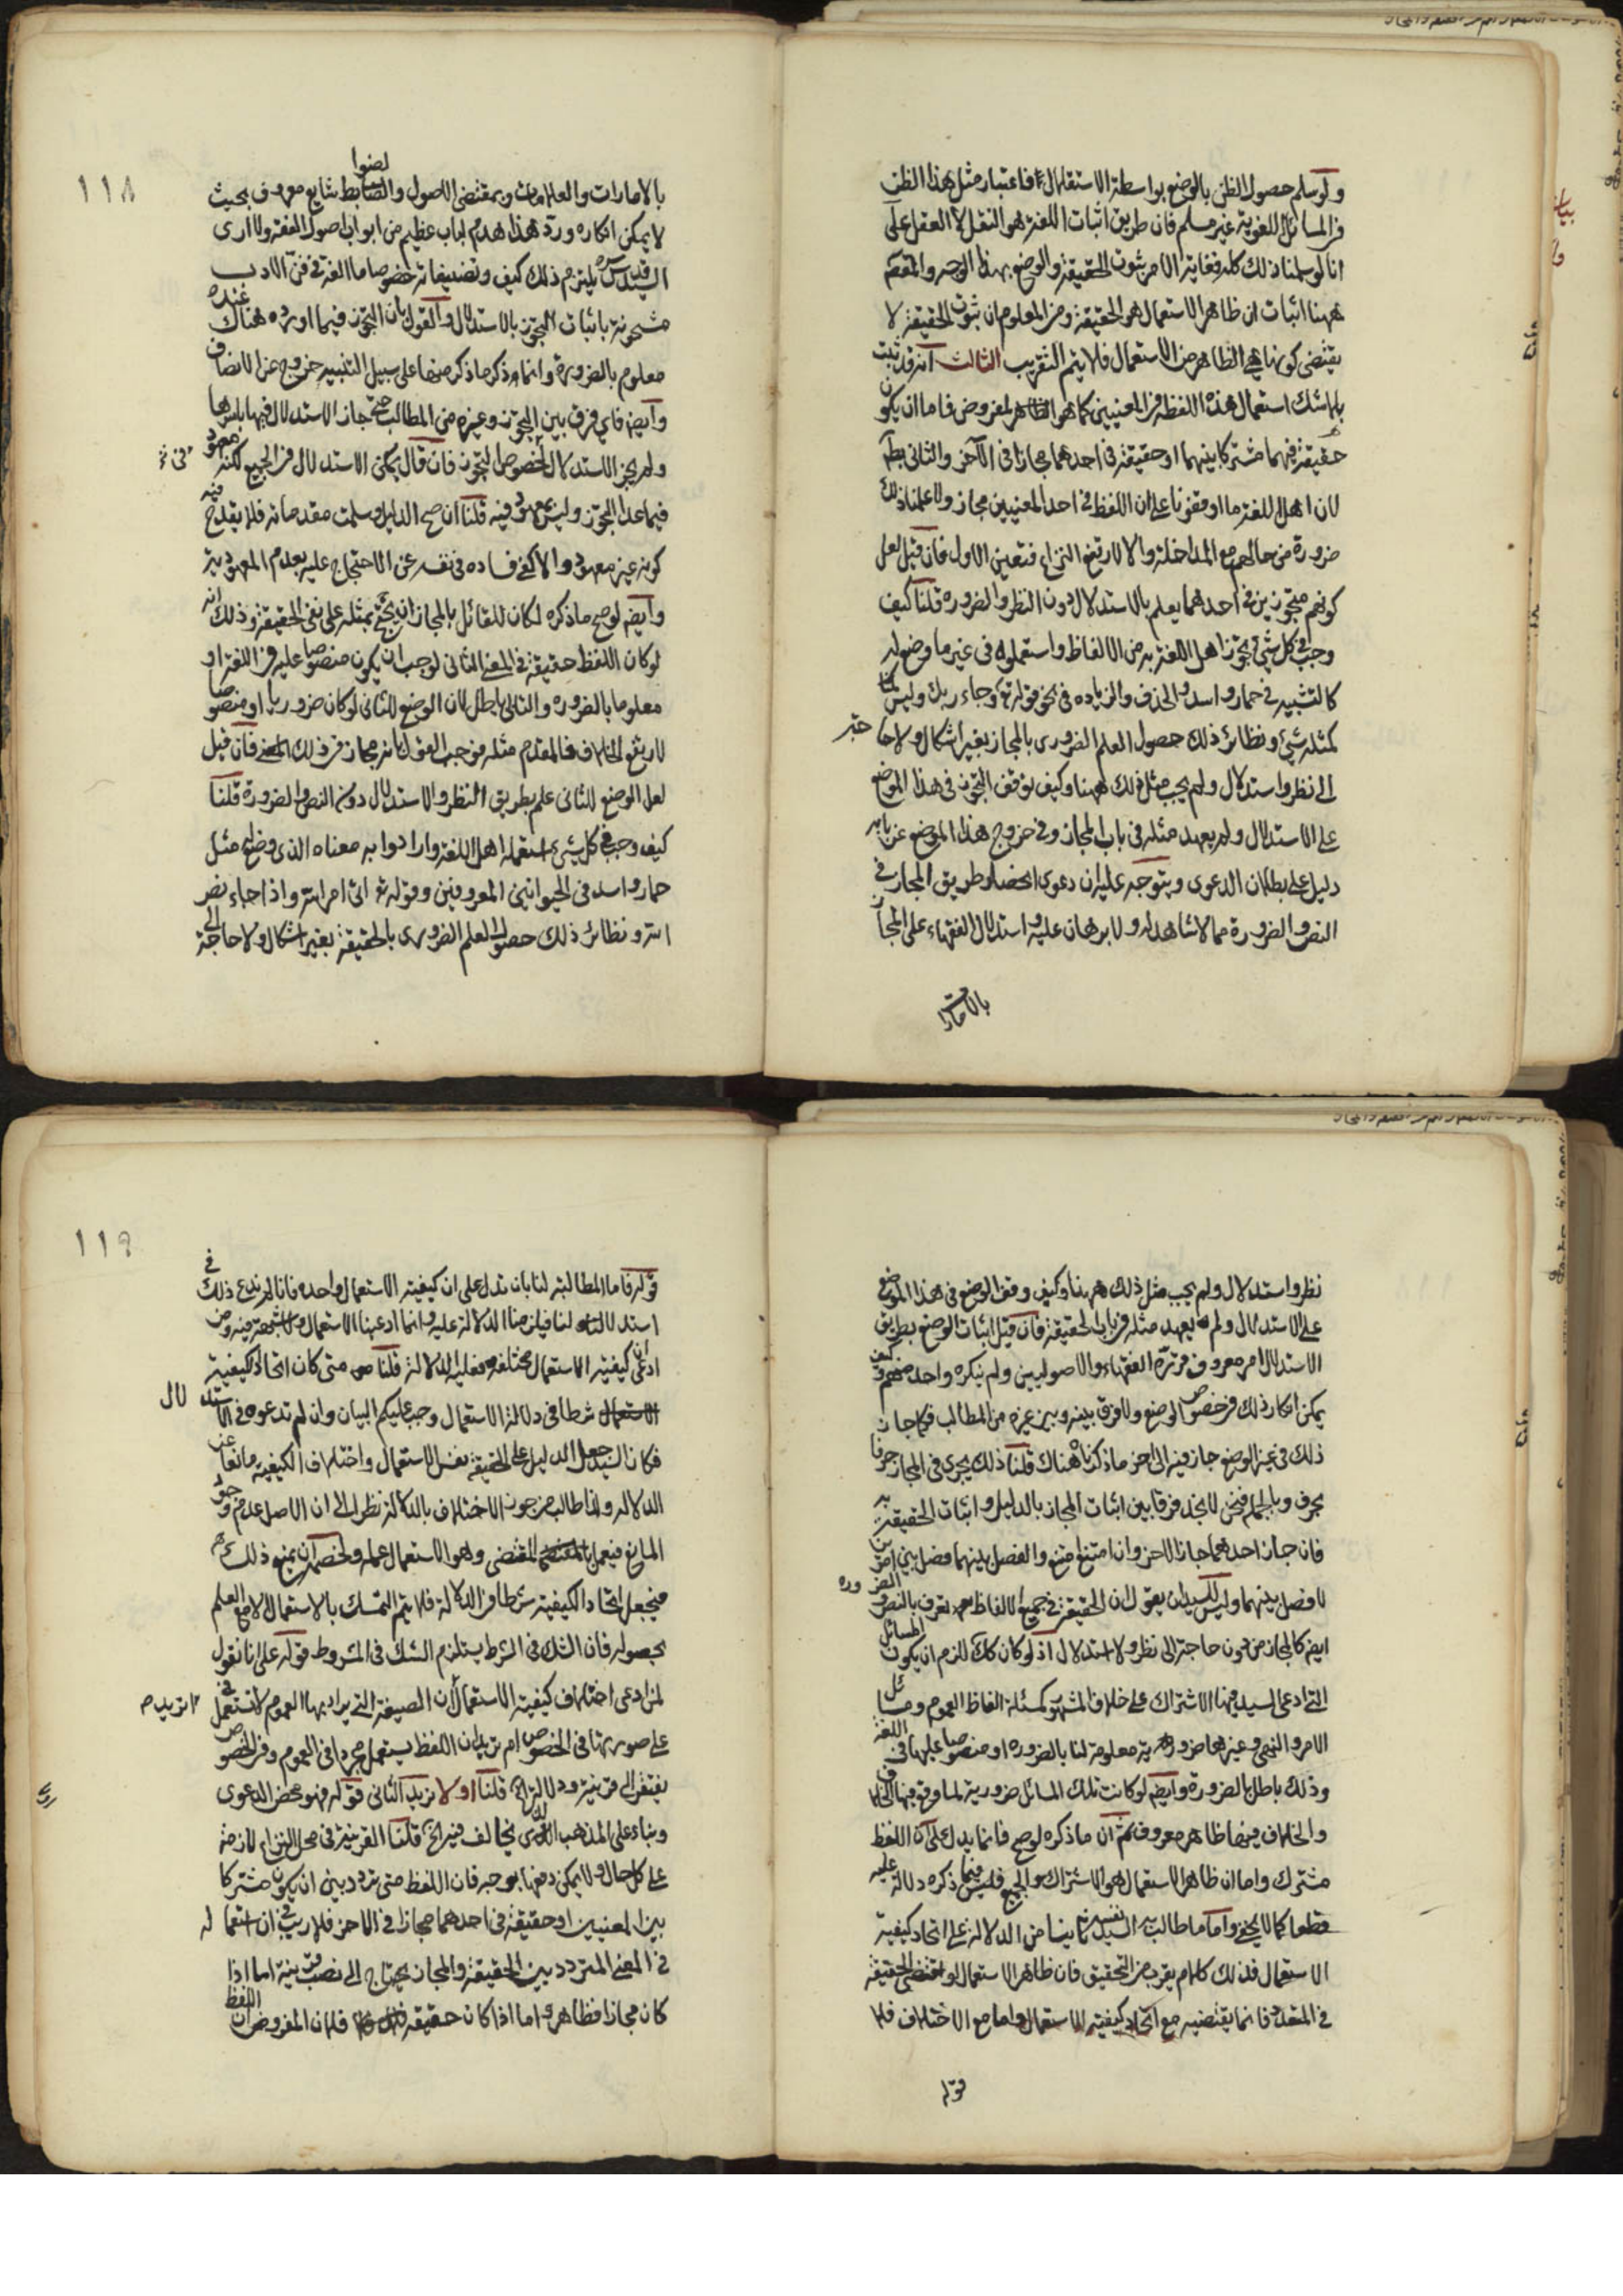 ولو سلم حصول الظن بالوضع بواسطة الاستقلال فاعتبار مثل هذا الظن
في المسائل اللغوية غير مسلم فان طريق اثبات اللغة هو النقل لا العقل على
انا لو سلمنا ذلك كله فغاية الامر ثبوت الحقيقة والوضع بهذا الوجه والمقصم
ههنا اثبات ان ظاهر الاستعمال هو الحقيقة ومن المعلوم ان ثبوت الحقيقة لا
يقتضي كونها هي الظاهر من الاستعمال فلا يتم التقريب الثالث انه قد ثبت
بلا شك استعمال هذه اللفظة في المعنيين كما هو المفروض فاما ان يكون
حقيقة فيهما مشتركا بينهما او حقيقة في احدهما مجازا في الآخر والثاني بط
لان اهل اللغة ما اوقفونا على ان اللفظ في احد المعنيين مجاز ولا علمنا ذلك
ضرورة من حالهم مع المداخلة والا لارتفع النزاع فتعين الاول فان قيل لعل
كونهم متجوزين في احدهما يعلم بالاستدلال دون النظر والضرورة قلنا كيف
وجب في كل شيء تجوز اهل اللغة به من الالفاظ واستعملوه في غير ما وضع له
كالتشبيه في حمار واسد والحذف والزيادة في نحو قوله تع وجاء ربك وليس
كمثله شيء ونظائر ذلك حصول العلم الضروري بالمجاز بغير اشكال ولا حاجة
الى نظر واستدلال ولم يجب مثل ذلك ههنا وكيف توقف التجوز في هذا الموضع
على الاستدلال ولم يعهد مثله في باب المجاز وفي خروج هذا الموضع عن بابه
دليل على بطلان الدعوى ويتوجه عليه ان دعوى انحصار طريق المجاز في
النص والضرورة مما لا شاهد له ولا برهان عليه واستدلال الفقهاء على المجاز
بالامارات
118
بالامارات والعلامات وبمقتضى الاصول والضوابط شايع معروف بحيث
لا يمكن انكاره ورد هذا هدم لباب عظيم من ابواب اصول الفقه ولا ارى
السيد قدس سره يلتزم ذلك كيف وتصنيفاته خصوصا ما الفه في فن الادب
مشحونة باثبات التجوز بالاستدلال والقول بان التجوز فيما اورده هناك
معلوم بالضرورة وانما ذكر ما ذكر منها على سبيل التنبيه خروج عن الانصاف
وايضم فاي فرق بين التجوز وغيره من المطالب حتى جاز الاستدلال فيها باسرها
ولم يجز الاستدلال لخصوص التجوز فان قال يمكن الاستدلال في الجميع لكنه معهود
فيما عدا التجوز وليس بمعهود فيه قلنا ان صح الدليل وسلمت مقدماته فلا يقدح فيه
كونه غير معهود والا كفى فساده في نفسه عن الاحتجاج عليه بعدم المعهودية
وايضم لو صح ما ذكره لكان للقائل بالمجاز ان يحتج بمثله على نفي الحقيقة وذلك انه
لو كان اللفظ حقيقة في المعنى الثاني لوجب ان يكون منصوصا عليه في اللغة او
معلوما بالضرورة والتالي باطل لان الوضع للثاني لو كان ضروريا او منصوصا
لارتفع الخلاف فالمقدم مثله فوجب القول بانه مجاز في ذلك المعنى فان قيل
لعل الوضع للثاني علم بطريق النظر والاستدلال دون النص والضرورة قلنا
كيف وجب في كل شيء استعمله اهل اللغة وارادوا به معناه الذي وضع له مثل
حمار واسد في الحيوانين المعروفين وقوله تع اتى امر الله واذا جاء نصر
الله ونظائر ذلك حصول العلم الضروري بالحقيقة بغير اشكال ولا حاجة الى
نظر واستدلال ولم يجب مثل ذلك ههنا وكيف وقف الوضع في هذا الموضع
على الاستدلال ولم يعهد مثله في باب الحقيقة فان قيل اثبات الوضع بطريق
الاستدلال امر معروف من الفقهاء والاصوليين ولم ينكره واحد منهم وكيف
يمكن انكار ذلك في خصوص الوضع ولا فرق بينه وبين غيره من المطالب فكما جاز
ذلك في غير الوضع جاز فيه الى اخر ما ذكرناه هناك قلنا ذلك يجري في المجاز حرفا
بحرف وبالجملة فنحن لا نجد فرقا بين اثبات المجاز بالدليل واثبات الحقيقة به
فان جاز احدهما جاز الاخر وان امتنع امتنع والفصل بينهما فصل بين امرين
لا فصل بينهما وليس للسيد ان يقول ان الحقيقة في جميع الالفاظ تعرف بالنص والضرورة
ايضم كالمجاز من دون حاجة الى نظر ولا استدلال اذ لو كان كك للزم ان يكون المسائل
التي ادعى السيد فيها الاشتراك على خلاف المشهور كمسئلة الفاظ العموم ومسائل
الامر والنهي وغيرها ضرورية معلومة لنا بالضرورة او منصوصا عليها في اللغة
وذلك باطل بالضرورة وايضم لو كانت تلك المسائل ضرورية لما وقع فيها الخلاف
والخلاف فيها ظاهر معروف ثم ان ما ذكره لو صح فانما يدل على ان اللفظ
مشترك واما ان ظاهر الاستعمال هو الاشتراك والجمع فليس فيما ذكره دلالة عليه
قطعا كما لا يخفى واما ما طالب به السيد نفسه ثانيا من الدلالة على اتحاد كيفية
الاستعمال فذلك كلام يقرب من التحقيق فان ظاهر الاستعمال لو اقتضى الحقيقة
في المتعدد فانما يقتضيه مع اتحاد كيفية الاستعمال واما مع الاختلاف فلا
قوله
119
قوله فاما المطالبة لنا بان ندل على ان كيفية الاستعمال واحدة فانا لم ندع ذلك في
استدلالنا فيلزمنا الدلالة عليه وانما ادعينا الاستعمال ولا شبهة فيه ومن
ادعى ان كيفية الاستعمال مختلفة فعليه الدلالة قلنا متى كان اتحاد كيفية
الاستعمال شرطا في دلالة الاستعمال وجب عليكم البيان وان لم تدعوه في الاستدلال
فكان السيد جعل الدليل على الحقيقة نفس الاستعمال واختلاف الكيفية مانعا عن
الدلالة ولذا طالب من جوز الاختلاف بالدلالة نظرا الى ان الاصل عدم وجود
المانع فيعمل المقتضي وهو الاستعمال عمله ولخصمه ان يمنع ذلك
فيجعل اتحاد الكيفية شرطا في الدلالة فلا يتم التمسك بالاستعمال الا مع العلم
بحصوله فان الشك في الشرط يستلزم الشك في المشروط قوله على انا نقول
لمن ادعى اختلاف كيفية الاستعمال ان الصيغة التي يراد بها العموم لا تستعمل
على صورتها في الخصوص ام تريد ان اللفظ يستعمل مجردا في العموم وفي الخصوص
يفتقر الى قرينة ودلالة الخ قلنا اولا نريد الثاني قوله فهو محض الدعوى
وبناء على المذهب الذي يخالف فيه الخ قلنا القرينة في محل النزاع لازمة
على كل حال ولا يمكن دفعها بوجه فان اللفظ متى تردد بين ان يكون مشتركا
بين المعنيين او حقيقة في احدهما مجازا في الاخر فلا ريب في ان استعماله
في المعنى المتردد بين الحقيقة والمجاز يحتاج الى نصب قرينة اما اذا
كان مجازا فظاهر واما اذا كان حقيقة فلان المفروض ان اللفظ